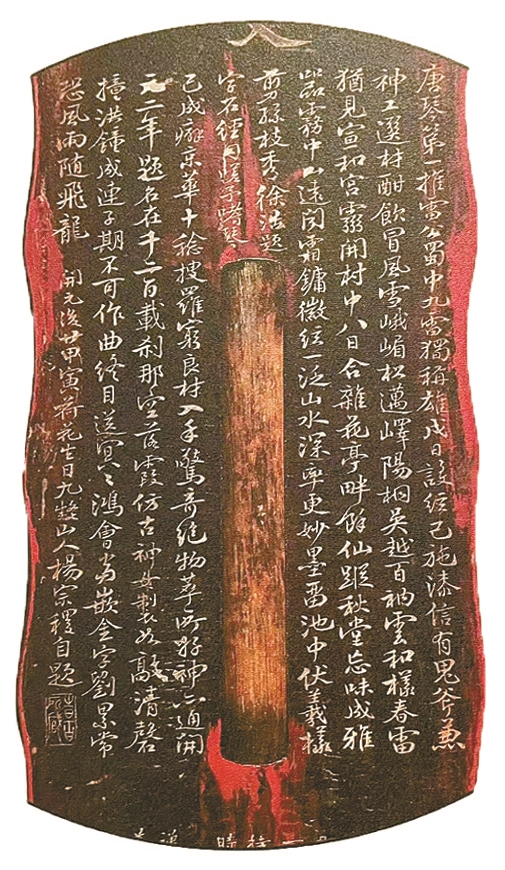 唐琴第一推雷公蜀中九雷獨稱雄戊日設絃已施漆信有鬼斧兼
神工選材酣飲冒風雪峨嵋松邁嶧陽桐吳越百衲雲和樣春雷
猶見宣和宮靈開村中八日合雜花亭畔餘仙蹤秋堂忘味成雅
器霧中山遠聞霜鏞徽絃一泛山水深率更妙墨留池中伏羲樣
剪孫枝秀徐浩題
字石經同嗟予嗜琴
已成癖京華十稔搜羅窮良材入手驚奇絕物萃所好神亦通開
元二年題名在千二百載刹那空落霞仿古神女製如敲清磬
撞洪鐘成連子期不可作曲終目送冥々鴻會當嵌金字劉累常
恐風雨隨飛龍 開元後廿甲寅荷花生日九嶷山人楊宗稷自題